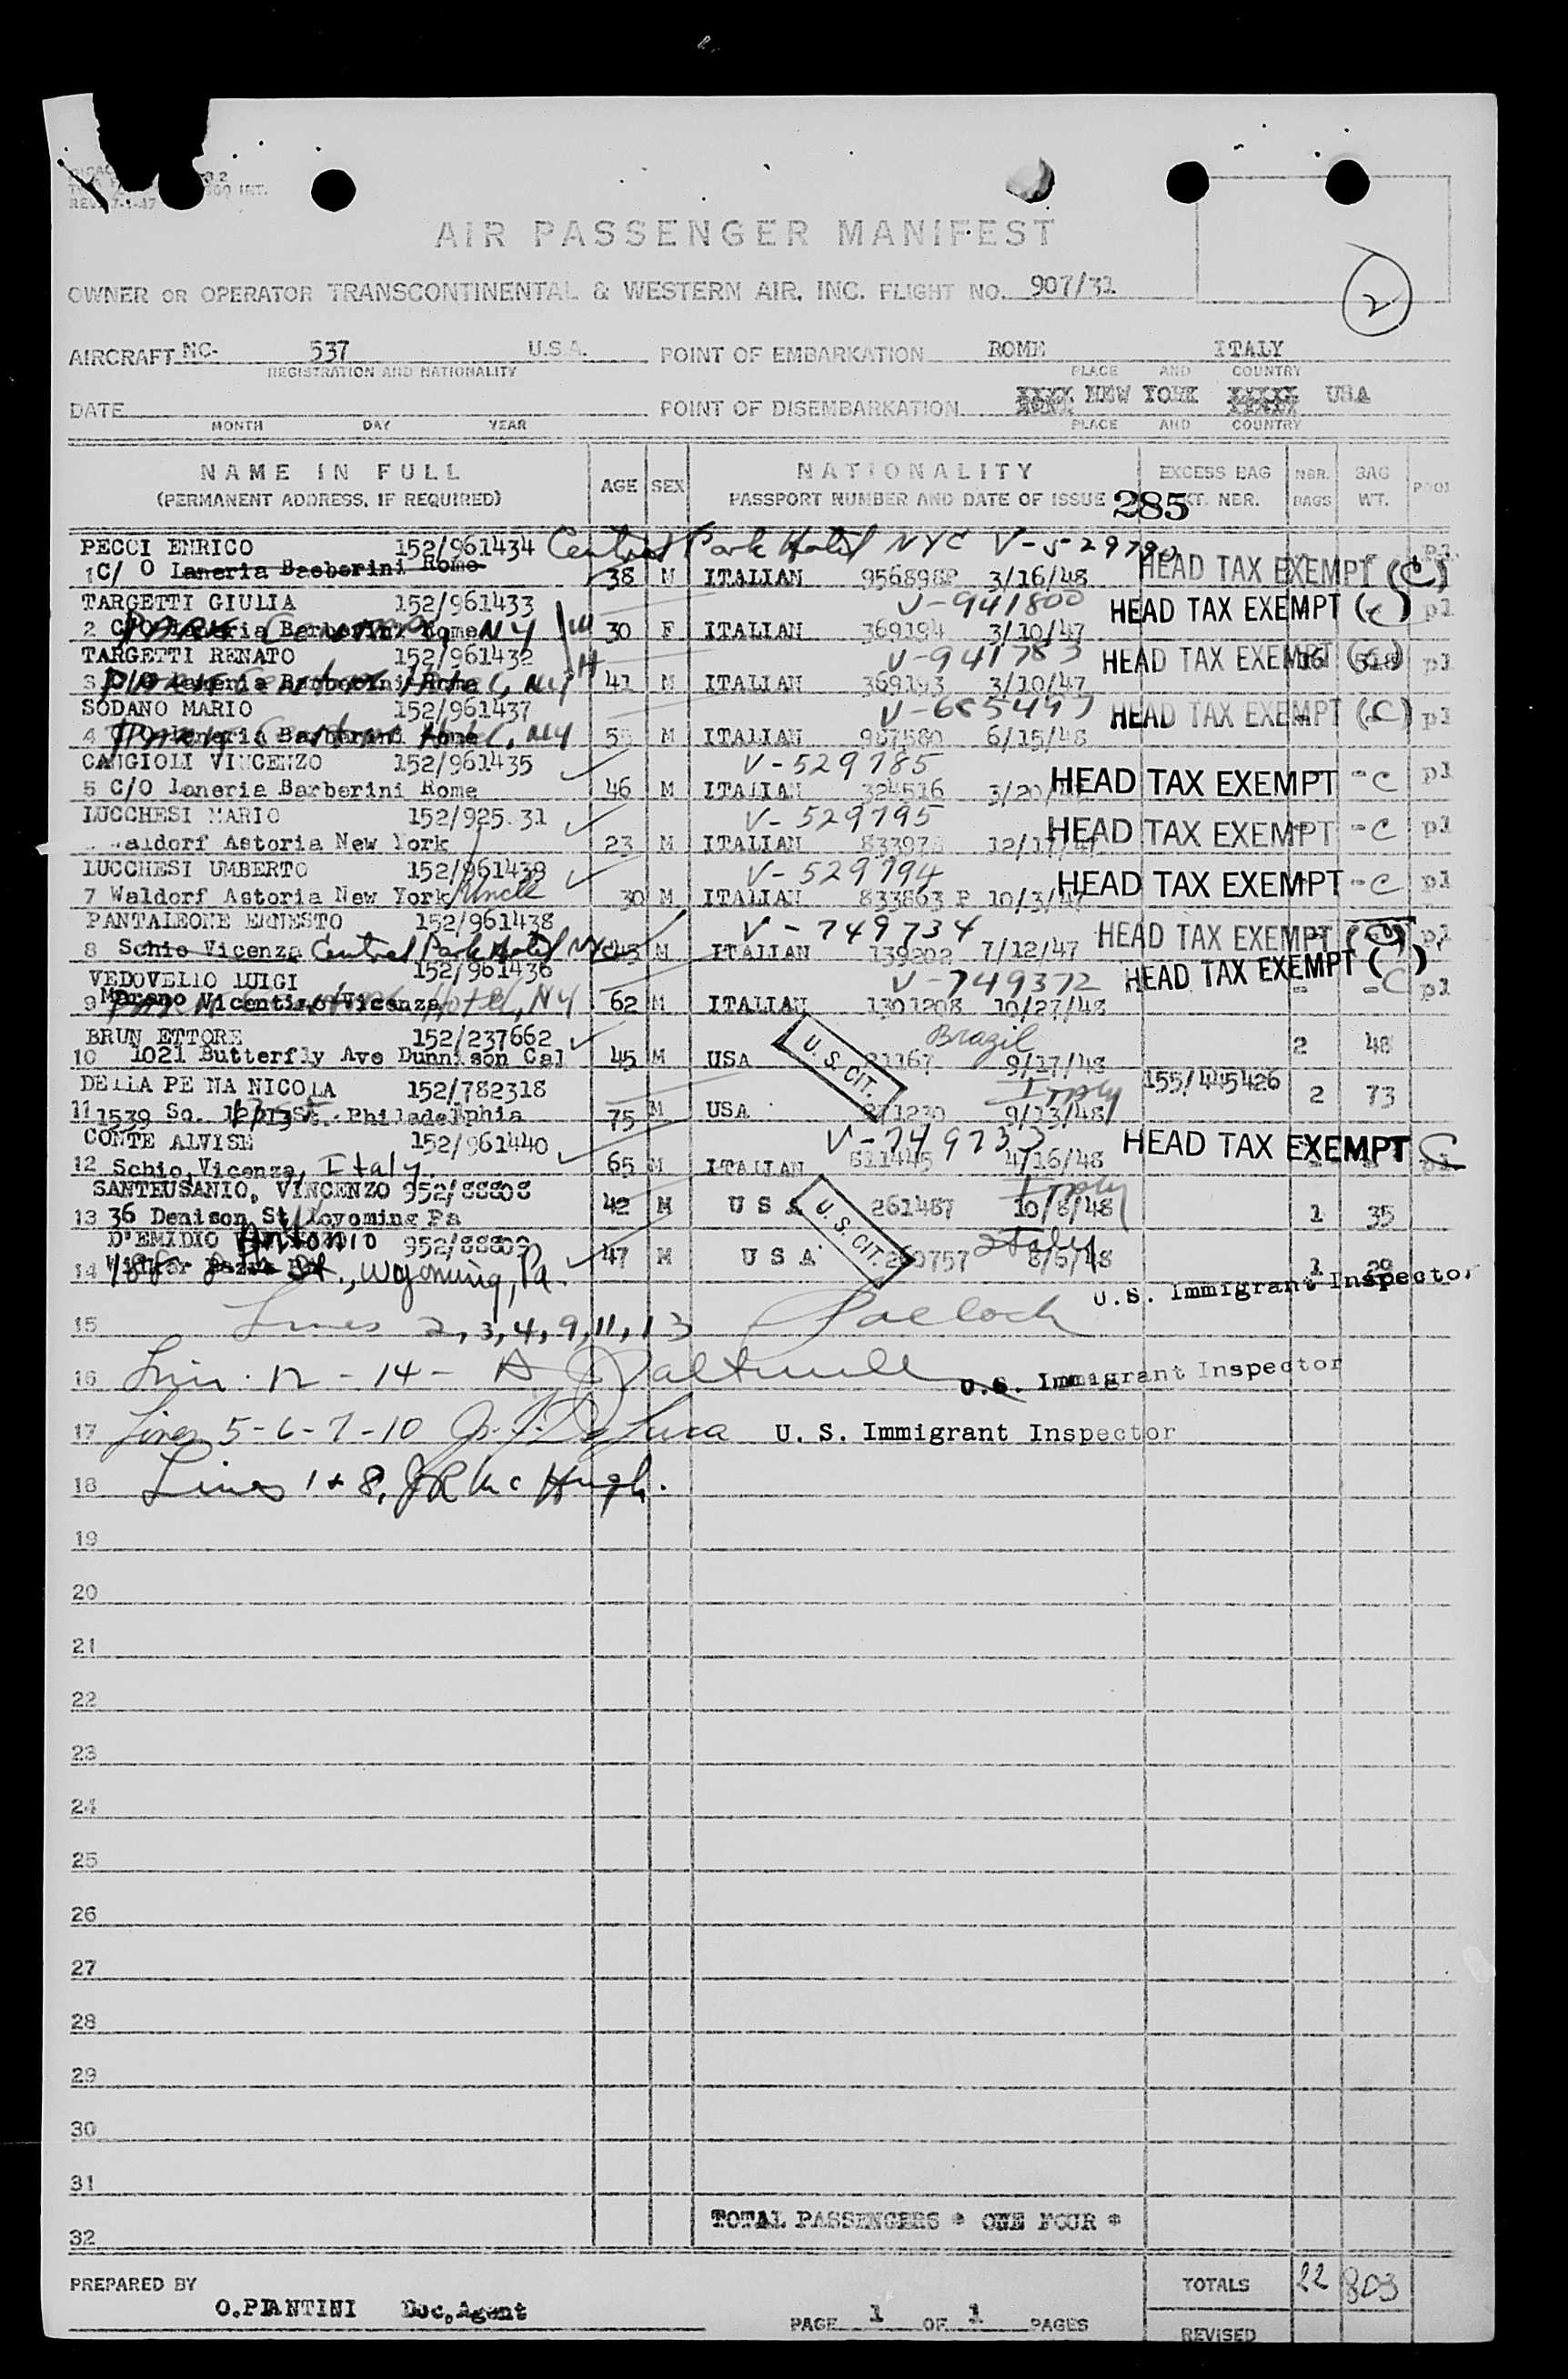 REV. 7-1-47
AIR PASSENGER MANIFEST
OWNER OR OPERATOR TRANSCONTINENTAL & WESTERN AIR, INC. FLIGHT NO. 907/31
2
AIRCRAFT NC- 537 U.S.A. POINT OF EMBARKATION ROME ITALY
REGISTRATION AND NATIONALITY PLACE AND COUNTRY
DATE POINT OF DISEMBARKATION NEW YORK USA
MONTH DAY YEAR PLACE AND COUNTRY
NAME IN FULL AGE SEX NATIONALITY EXCESS BAG NBR. BAG POOL
(PERMANENT ADDRESS, IF REQUIRED) PASSPORT NUMBER AND DATE OF ISSUE 285 KT. NBR. BAGS WT.
PECCI ENRICO 152/961434 Central Park Hotel NYC V-529790
1 C/O Laneria Baeberini Rome 38 M ITALIAN 956898P 3/16/48 HEAD TAX EXEMPT (C)
TARGETTI GIULIA 152/961433 V-941800 HEAD TAX EXEMPT (C) pl
2 C/O Laneria Barberini Rome NY W 30 F ITALIAN 369194 3/10/47
TARGETTI RENATO 152/961432 V-941783 HEAD TAX EXEMPT (C) 16 518 pl
3 C/O Laneria Barberini Rome NY H 41 M ITALIAN 369193 3/10/47
SODANO MARIO 152/961437 V-685497 HEAD TAX EXEMPT (C) pl
4 C/O Laneria Barberini Rome NY M ITALIAN 967580 6/15/48
CANGIOLI VINCENZO 152/961435 V-529785
5 C/O Laneria Barberini Rome 46 M ITALIAN 324516 3/20/ HEAD TAX EXEMPT -C pl
LUCCHESI MARIO 152/925 31 V-529795
Waldorf Astoria New York 23 M ITALIAN 12/17/47 HEAD TAX EXEMPT -C pl
LUCCHESI UMBERTO 152/961439 V-529794
7 Waldorf Astoria New York Uncle 30 M ITALIAN 833863 P 10/3/47 HEAD TAX EXEMPT -C pl
PANTALEONE ERNESTO 152/961438 V-749734 HEAD TAX EXEMPT (C) pl
8 Schio Vicenza Central Park Hotel NYC 45 M ITALIAN 139202 7/12/47
VEDOVELLO LUIGI 152/961436 V-749372 HEAD TAX EXEMPT ( ) C pl
9 Marano Vicentino Vicenza Hotel, NY 62 M ITALIAN 1301208 10/27/48
BRUN ETTORE 152/237662 Brazil
10 1021 Butterfly Ave Dunnison Cal 45 M USA U. S. CIT. 21167 9/17/48 2 48
DELLA PE NA NICOLA 152/782318 Italy 155/445426 2 73
11 1539 So. St. Philadelphia 75 M USA 271230 9/13/48
CONTE ALVISE 152/961440 V-749733 HEAD TAX EXEMPT C
12 Schio, Vicenza, Italy. 65 M ITALIAN 811445 4/16/48 pl
SANTEUSANIO, VINCENZO 952/88808 42 M U S A 261487 Italy 10/8/48
13 36 Denison St Woyoming Pa U. S. CIT. 1 35
D'EMIDIO Antonio 952/88809 47 M U S A 260757 Italy 8/6/48
14 188 St., Wyoming, Pa. 1 29
U.S. Immigrant Inspector
15 Lines 2,3,4,9,11,13
16 Lines 12-14- U.S. Immigrant Inspector
17 Lines 5-6-7-10 De Luca U. S. Immigrant Inspector
18 Lines 1+8, JR McHugh.
19
20
21
22
23
24
25
26
27
28
29
30
31
TOTAL PASSENGERS * ONE FOUR *
32
PREPARED BY TOTALS 22 803
O.PIANTINI Doc,Agent PAGE 1 OF 1 PAGES
REVISED